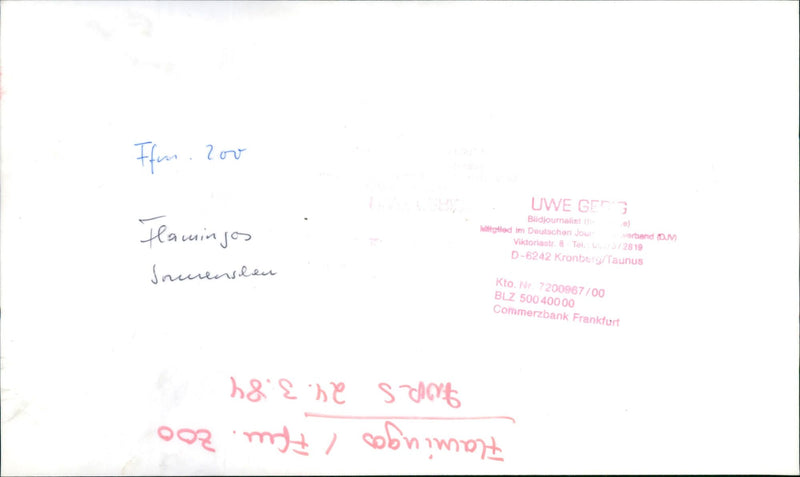 Ffm. Zoo
Flamingos
UWE GERIG
Bildjournalist
Mitglied im Deutschen
Viktoriastr. 8 · Tel.: /2819
D-6242 Kronberg/Taunus
Kto. Nr. 7200967/00
BLZ 500 400 00
Commerzbank Frankfurt
Flamingos / Ffm. Zoo
24.3.84